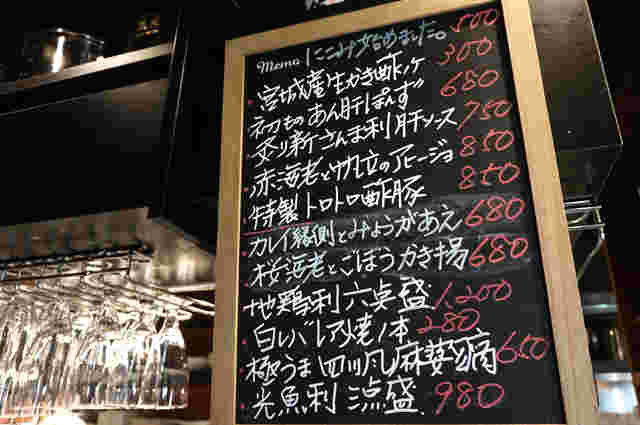 Memo ここみ始めました。 500
・宮城産生かき酢 1ヶ 300
初ものあん肝ぽんず 680
・炙り新さんま刺 肝ソース 750
・赤海老と帆立のアヒージョ 850
・特製トロトロ酢豚 850
・カレイ縁側とみょうがあえ 680
・桜海老とごぼうかき揚 680
・地鶏刺六点盛 1,200
・白レバレア焼1本 280
・極うま四川風麻婆豆腐 650
・光魚刺三点盛 980